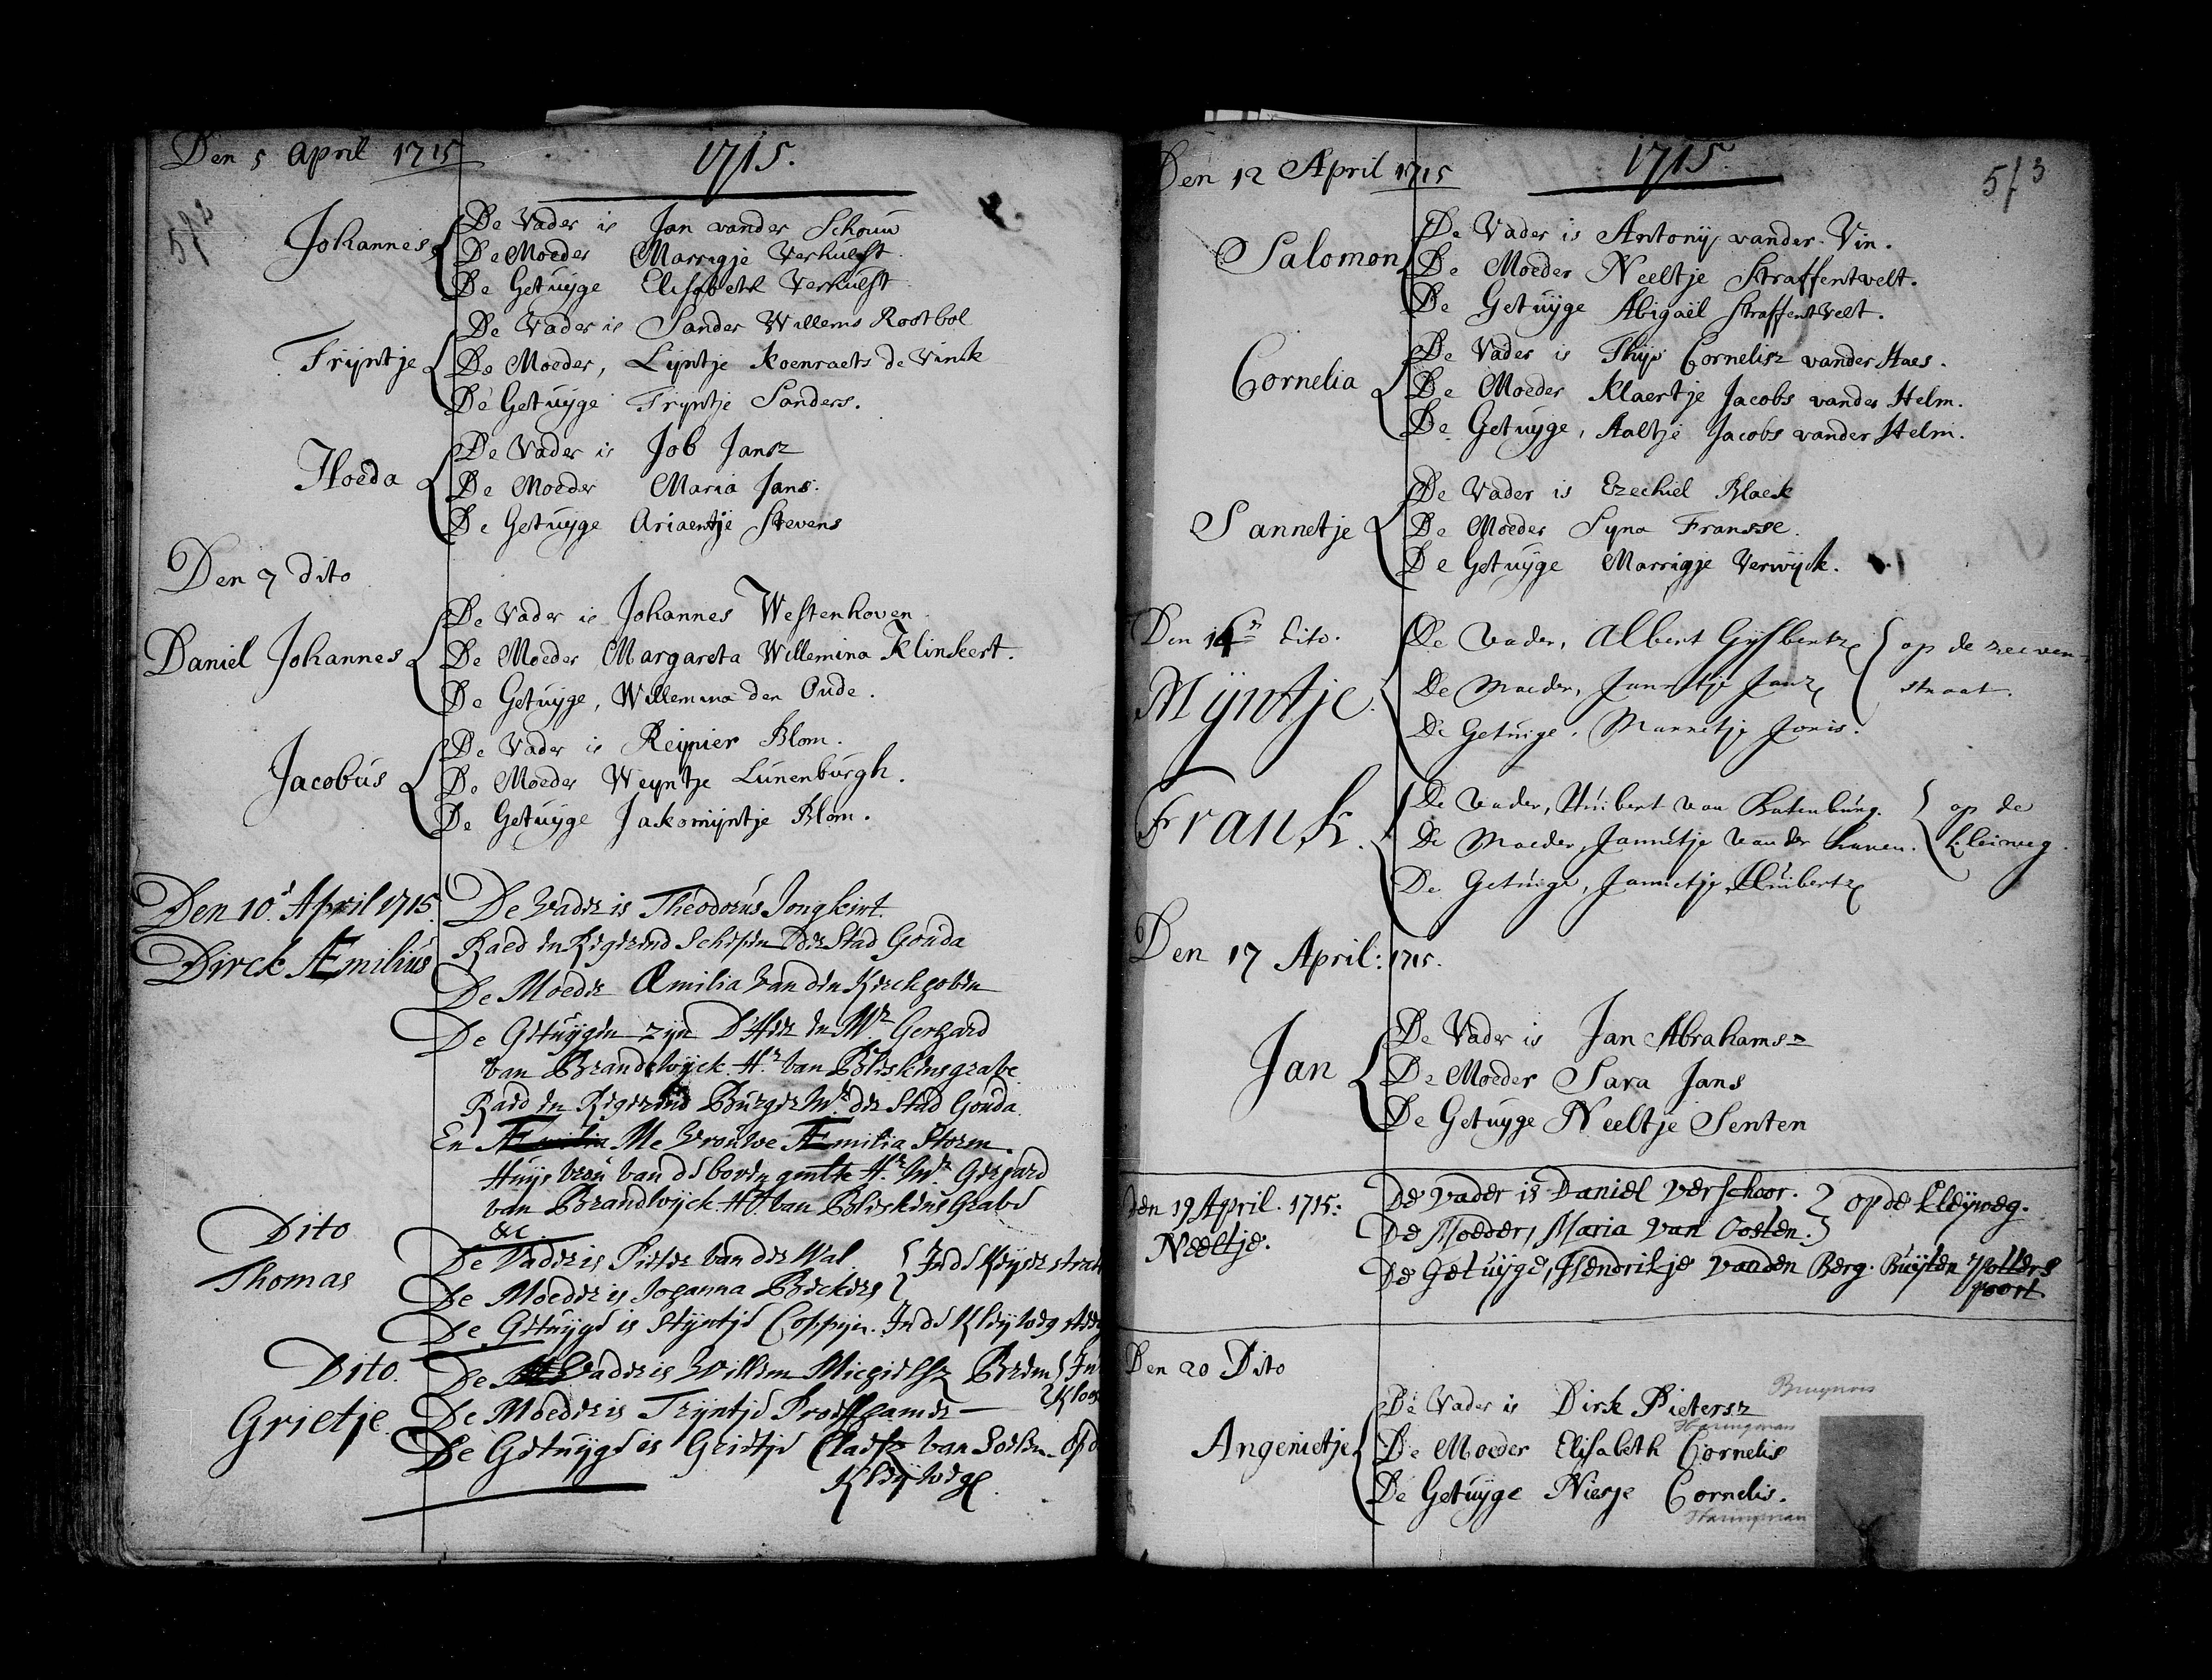 Den 5 April 1715
1715.
572
Johannes
De Vader is Jan vander Schouw
De Moeder Marrigje Verhulst
De Getuyge Elisabeth Verhulst
Tryntje
De Vader is Sander Willems Rootbol
De Moeder, Lyntje Koenraets de Vinck
De Getuyge Tryntje Sanders.
Hoeda
De Vader is Job Jansz
De Moeder Maria Jans.
De Getuyge Ariaentje Stevens
Den 7 dito
Daniel Johannes
De Vader is Johannes Westenhoven
De Moeder Margareta Willemina Klinkert.
De Getuyge, Willemina den Oude.
Jacobus
De Vader is Reynier Blom.
De Moeder Weyntje Lunenburgh.
De Getuyge Jakomyntje Blom.
Den 10 April 1715.
Dirck Æmilius
De Vader is Theodorus Jongkint.
Raed en Regerend Schepen der Stad Gouda
De Moeder Æmilia van den Kerckhoven
De Getuygen zyn D'Heer en Mr Gerhard
van Brandwyck. Hr. van Bleskensgrave
Raed en Regerend Burger Mr. der Stad Gouda.
En Mevrouwe Æmilia Storm
Huysvrou van de boven gemlte Hr. Mr. Gerhard
van Brandwyck Hr van Bleskens Grave
&c.
Dito
Thomas
De Vader is Pieter van der Wal
De Moeder is Johanna Beckers
In de Keyser straet
De Getuyge is Styntje Coppyn. In de Kleywegsteeg
Dito.
Grietje
De Vader is Willem Michielsz Brem In
De Moeder is Tryntje Proefhamer
De Getuyge is Grietje Claesz van Loenen op d
Kleyweg.
Den 12 April 1715
1715.
573
Salomon
De Vader is Antony vander Vin.
De Moeder Neeltje Straffentvelt.
De Getuyge Abigaël Straffentvelt.
Cornelia
De Vader is Thys Cornelisz vander Haes.
De Moeder Klaertje Jacobs vander Helm.
De Getuyge, Aaltje Jacobs vander Helm.
Sannetje
De Vader is Ezechiel Blaek
De Moeder Syna Fransse.
De Getuyge Marrigje Verwyck.
Den 14en dito.
Myntje.
De Vader, Albert Gysbertz
De Moeder, Jannetje Janz
op de zeeven-
straat.
De Getuige, Mannetje Joris.
Frank.
De Vader, Huibert van Batenburg.
De Moeder, Jannetje van der
op de
kleiweg.
De Getuige, Jannetje Huibertz
Den 17 April: 1715.
Jan
De Vader is Jan Abrahamsz
De Moeder Sara Jans
De Getuyge Neeltje Senten
den 19 April. 1715:
Neeltje.
De Vader is Daniel Verschoor.
De Moeder, Maria van Oosten.
op de kleyweg.
De Getuyge, Hendrikje vanden Berg. Buyten Potters
poort.
Den 20 Dito
Angenietje
De Vader is Dirk Pietersz
Bruynois
De Moeder Elisabeth Cornelis
Haringman
De Getuyge Niesje Cornelis.
Haringman